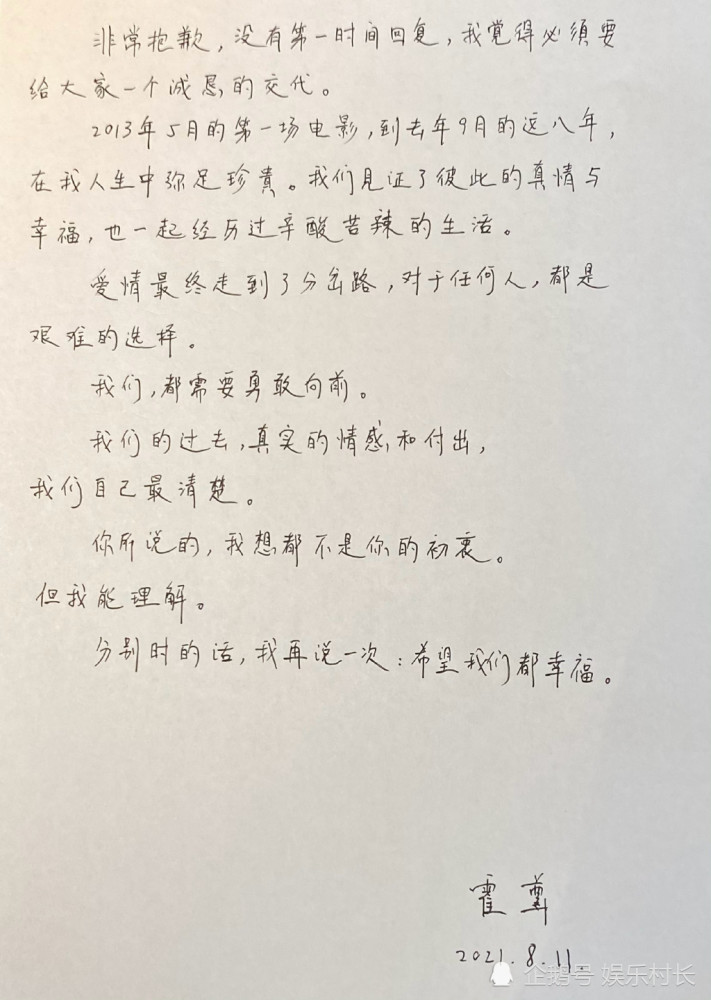 非常抱歉，没有第一时间回复，我觉得必須要
给大家一个诚恳的交代。
2013年5月的第一场电影，到去年9月的这八年，
在我人生中弥足珍貴。我们见证了彼此的真情与
幸福，也一起经历过辛酸苦辣的生活。
爱情最终走到了分岔路，对于任何人，都是
艰难的选择。
我们，都需要勇敢向前。
我们的过去，真实的情感和付出，
我们自己最清楚。
你所说的，我想都不是你的初衷。
但我能理解。
分别时的话，我再说一次：希望我们都幸福。
霍尊
2021.8.11.
企鹅号 娱乐村长